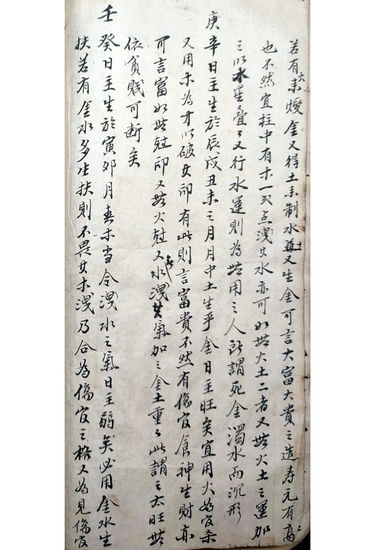 若有木火煖金又得土來制水蓋土又生金可言大富大貴之造壽元有高
也不然宜柱中有木一二点洩其水亦可如無火土二者又無火土之運加
之以水星疊々又行水運則為無用之人所謂死金濁水而沉形
庚辛日主生於辰戌丑未之月月中土生乎金日主旺矣宜用火為官杀
又用木為才以破其印有此則言富貴不然有傷官食神生財亦
可言富如無財印又無火尅又無水洩其氣加之金土重々此謂之太旺無
依貧賤可斷矣
壬癸日主生於寅卯月春木當令洩水之氣日主弱矣必用金水生
扶若有金水多生扶則不畏其木洩乃合為傷官之格又為見傷官